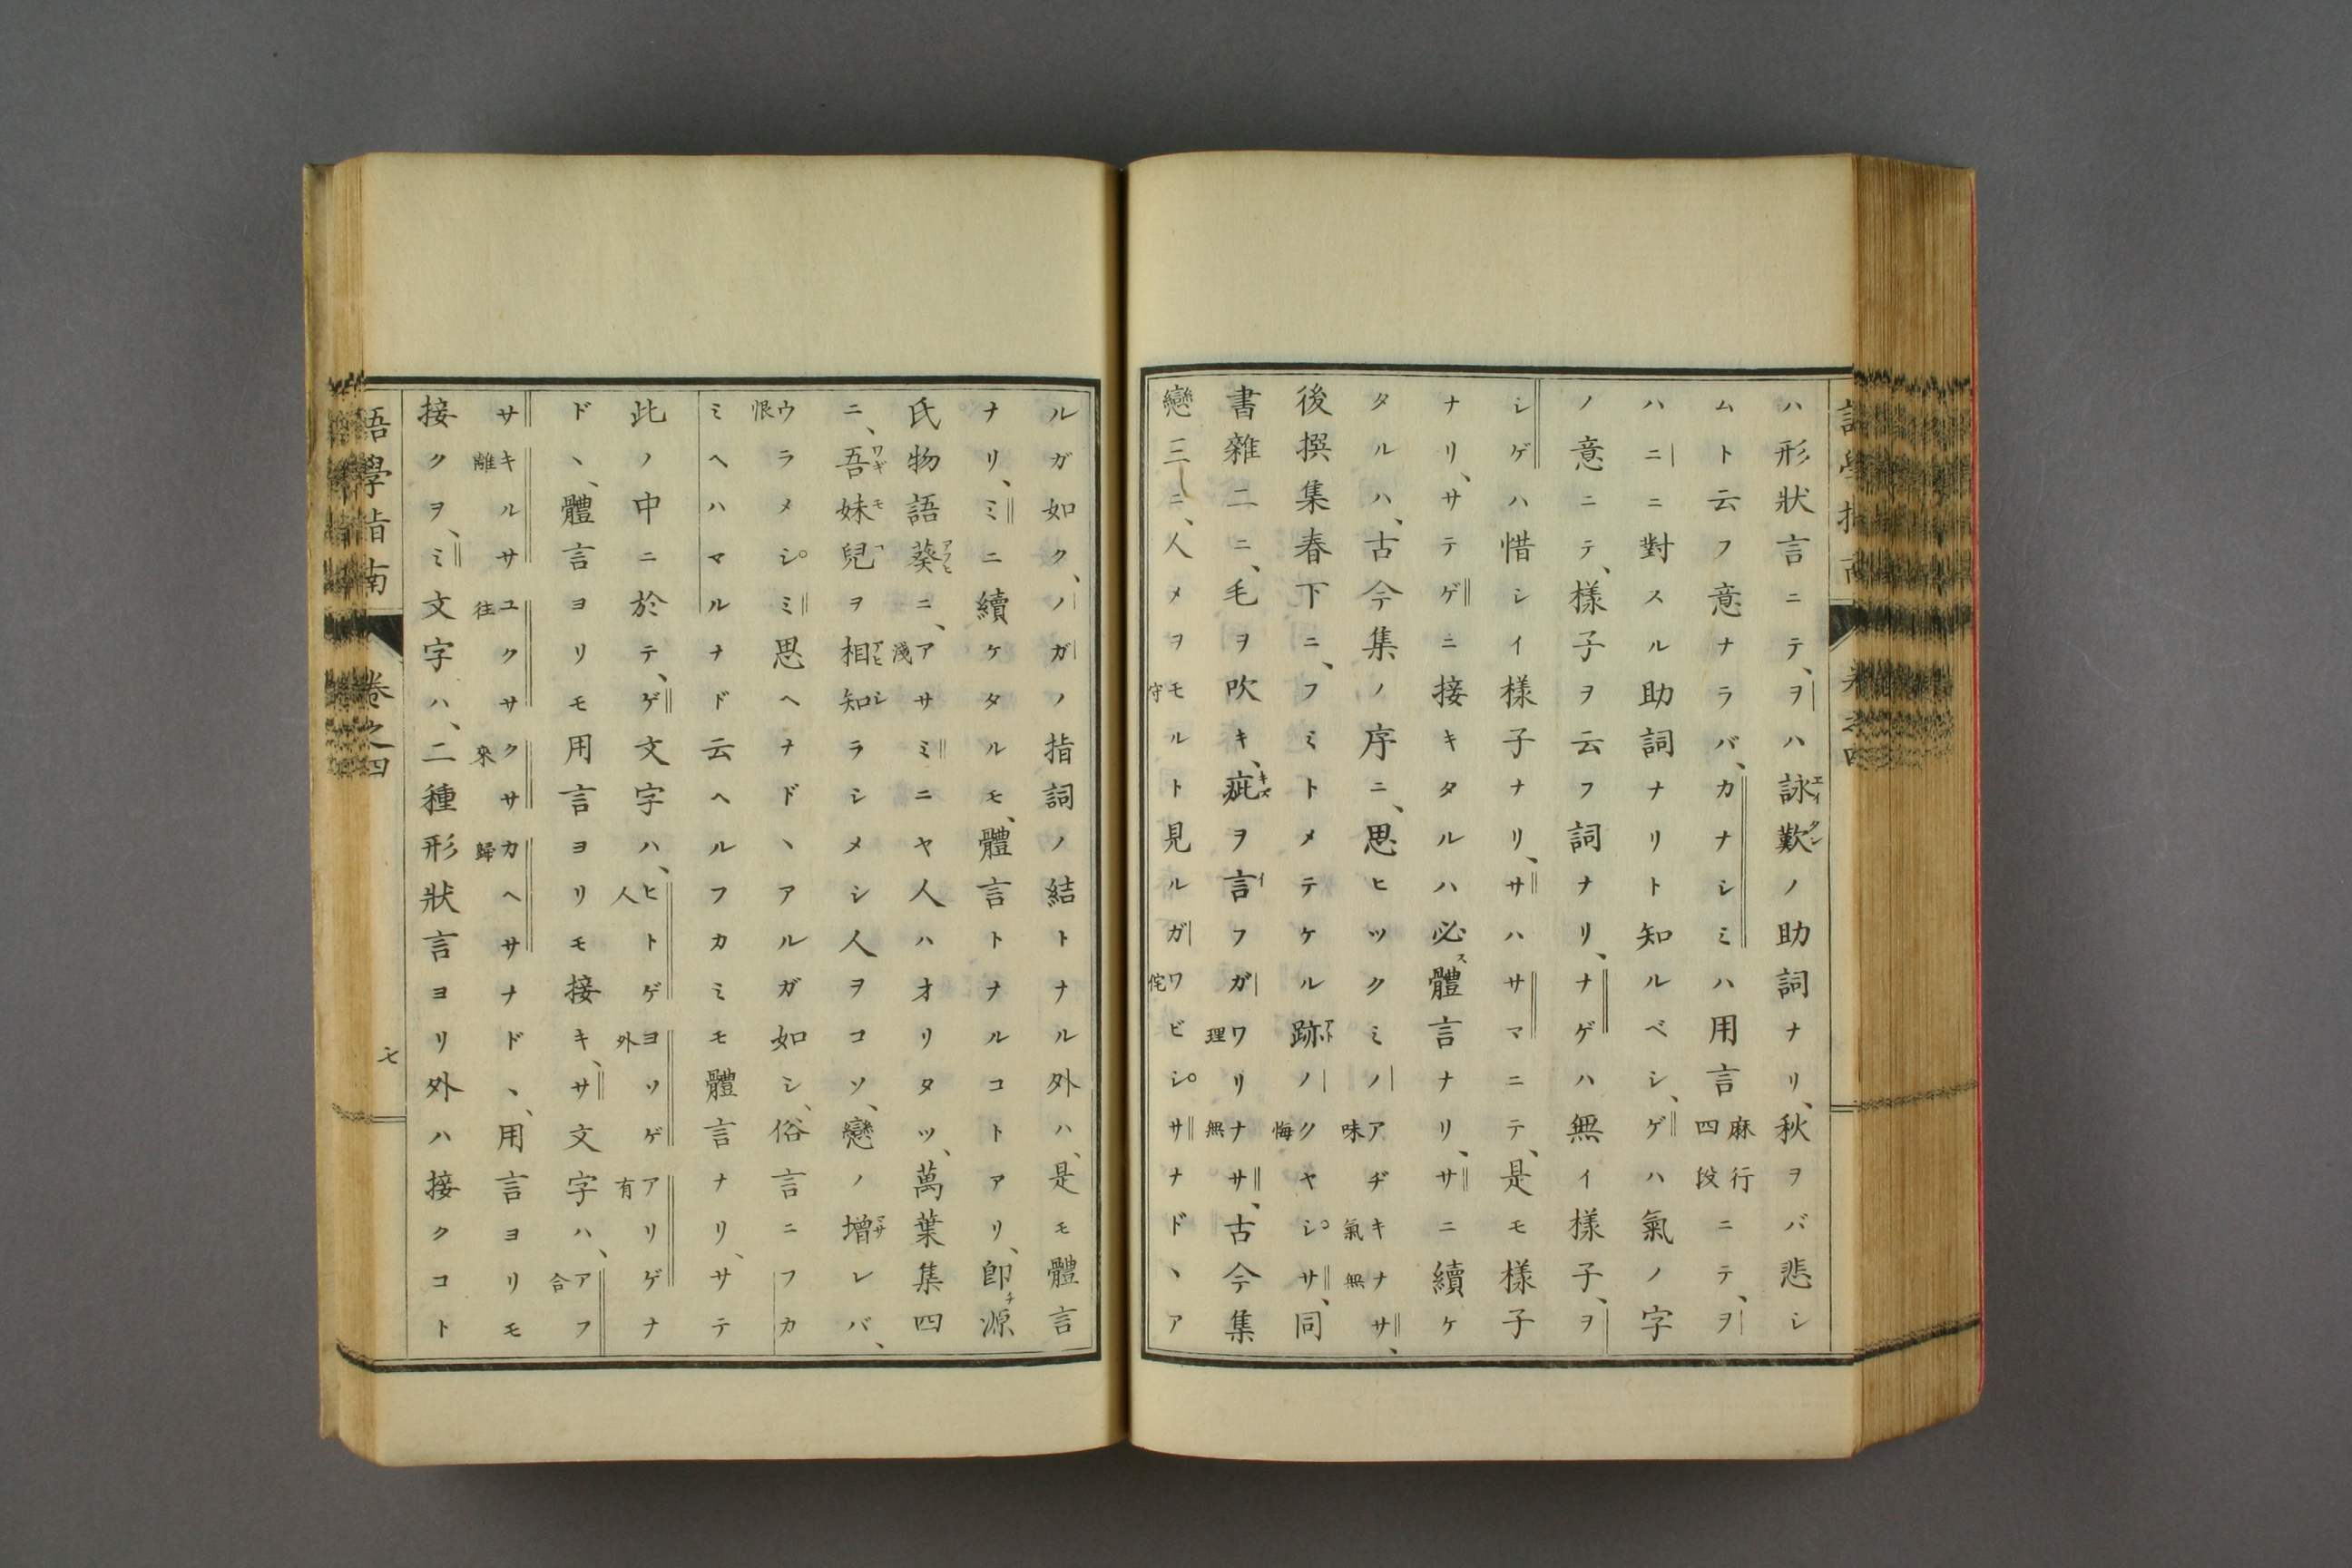 ハ形狀言ニテ、ヲハ詠歎ノ助詞ナリ、秋ヲバ悲シ
ムト云フ意ナラバ、カナシミハ用言麻行四段ニテ、ヲ
ハニニ對スル助詞ナリト知ルベシ、ゲハ氣ノ字
ノ意ニテ、樣子ヲ云フ詞ナリ、ナゲハ無イ樣子、ヲ
シゲハ惜シイ樣子ナリ、サハサマニテ、是モ樣子
ナリ、サテゲニ接キタルハ必ス體言ナリ、サニ續ケ
タルハ、古今集ノ序ニ、思ヒツクミノアヂキナサ、
後撰集春下ニ、フミトメテケル跡ノクヤシサ、同
書雜二ニ、毛ヲ吹キ、疵ヲ言フガワリナサ、古今集
戀三ニ、人メヲモルト見ルガワビシサナドヽア
ルガ如ク、ノガノ指詞ノ結トナル外ハ、是モ體言
ナリ、ミニ續ケタルモ、體言トナルコトアリ、卽チ源
氏物語葵ニ、アサミニヤ人ハオリタツ、萬葉集四
ニ、吾妹兒ヲ相知ラシメシ人ヲコソ、戀ノ增レバ、
ウラメシミ思ヘナドヽアルガ如シ、俗言ニフカ
ミヘハマルナド云ヘルフカミモ體言ナリ、サテ
此ノ中ニ於テ、ゲ文字ハ、ヒトゲヨソゲアリゲナ
ドヽ、體言ヨリモ用言ヨリモ接キ、サ文字ハ、アフ
サキルサユクサクサカヘサナドヽ、用言ヨリモ
接クヲ、ミ文字ハ、二種形狀言ヨリ外ハ接クコト
語學指南 卷之四 七